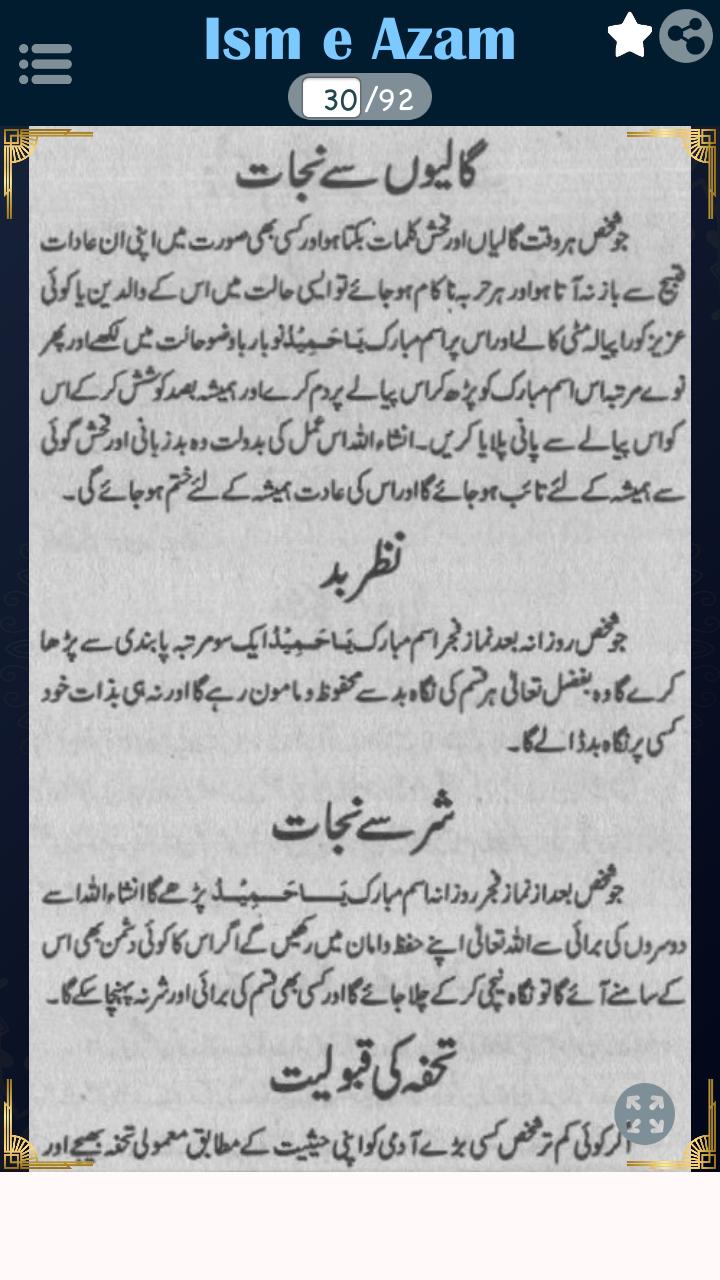 Ism e Azam
30/92
گالیوں سے نجات
جو شخص ہر وقت گالیاں اور فحش کلمات بکتا ہو اور کسی بھی صورت میں اپنی ان عادات
قبیح سے باز نہ آتا ہو اور ہر حربہ ناکام ہو جائے تو ایسی حالت میں اس کے والدین یا کوئی
عزیز کورا پیالہ مٹی کا لے اور اس پر اسم مبارک یَا حَمِیْدُ نو بار باوضو حالت میں لکھے اور پھر
نوے مرتبہ اس اسم مبارک کو پڑھ کر اس پیالے پر دم کرے اور ہمیشہ بصد کوشش کر کے اس
کو اس پیالے سے پانی پلایا کریں۔ انشاء اللہ اس عمل کی بدولت وہ بد زبانی اور فحش گوئی
سے ہمیشہ کے لئے تائب ہو جائے گا اور اس کی عادت ہمیشہ کے لئے ختم ہو جائے گی۔
نظر بد
جو شخص روزانہ بعد نماز فجر اسم مبارک یَا حَمِیْدُ ایک سو مرتبہ پابندی سے پڑھا
کرے گا وہ بفضل تعالیٰ ہر قسم کی نگاہ بد سے محفوظ و مامون رہے گا اور نہ ہی بذات خود
کسی پر نگاہ بد ڈالے گا۔
شر سے نجات
جو شخص بعد از نماز فجر روزانہ اسم مبارک یَا حَمِیْدُ پڑھے گا انشاء اللہ اسے
دوسروں کی برائی سے اللہ تعالیٰ اپنے حفظ و امان میں رکھیں گے اگر اس کا کوئی دشمن بھی اس
کے سامنے آئے گا تو نگاہ نیچی کر کے چلا جائے گا اور کسی بھی قسم کی برائی اور شر نہ پہنچا سکے گا۔
تحفہ کی قبولیت
اگر کوئی کم تر شخص کسی بڑے آدمی کو اپنی حیثیت کے مطابق معمولی تحفہ بھیجے اور